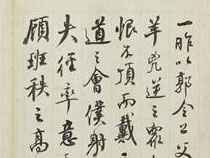 一昨以郭令公父
羊兇逆之眾
恨不頂而戴
道之會僕射
失徑率意
顧班秩之高